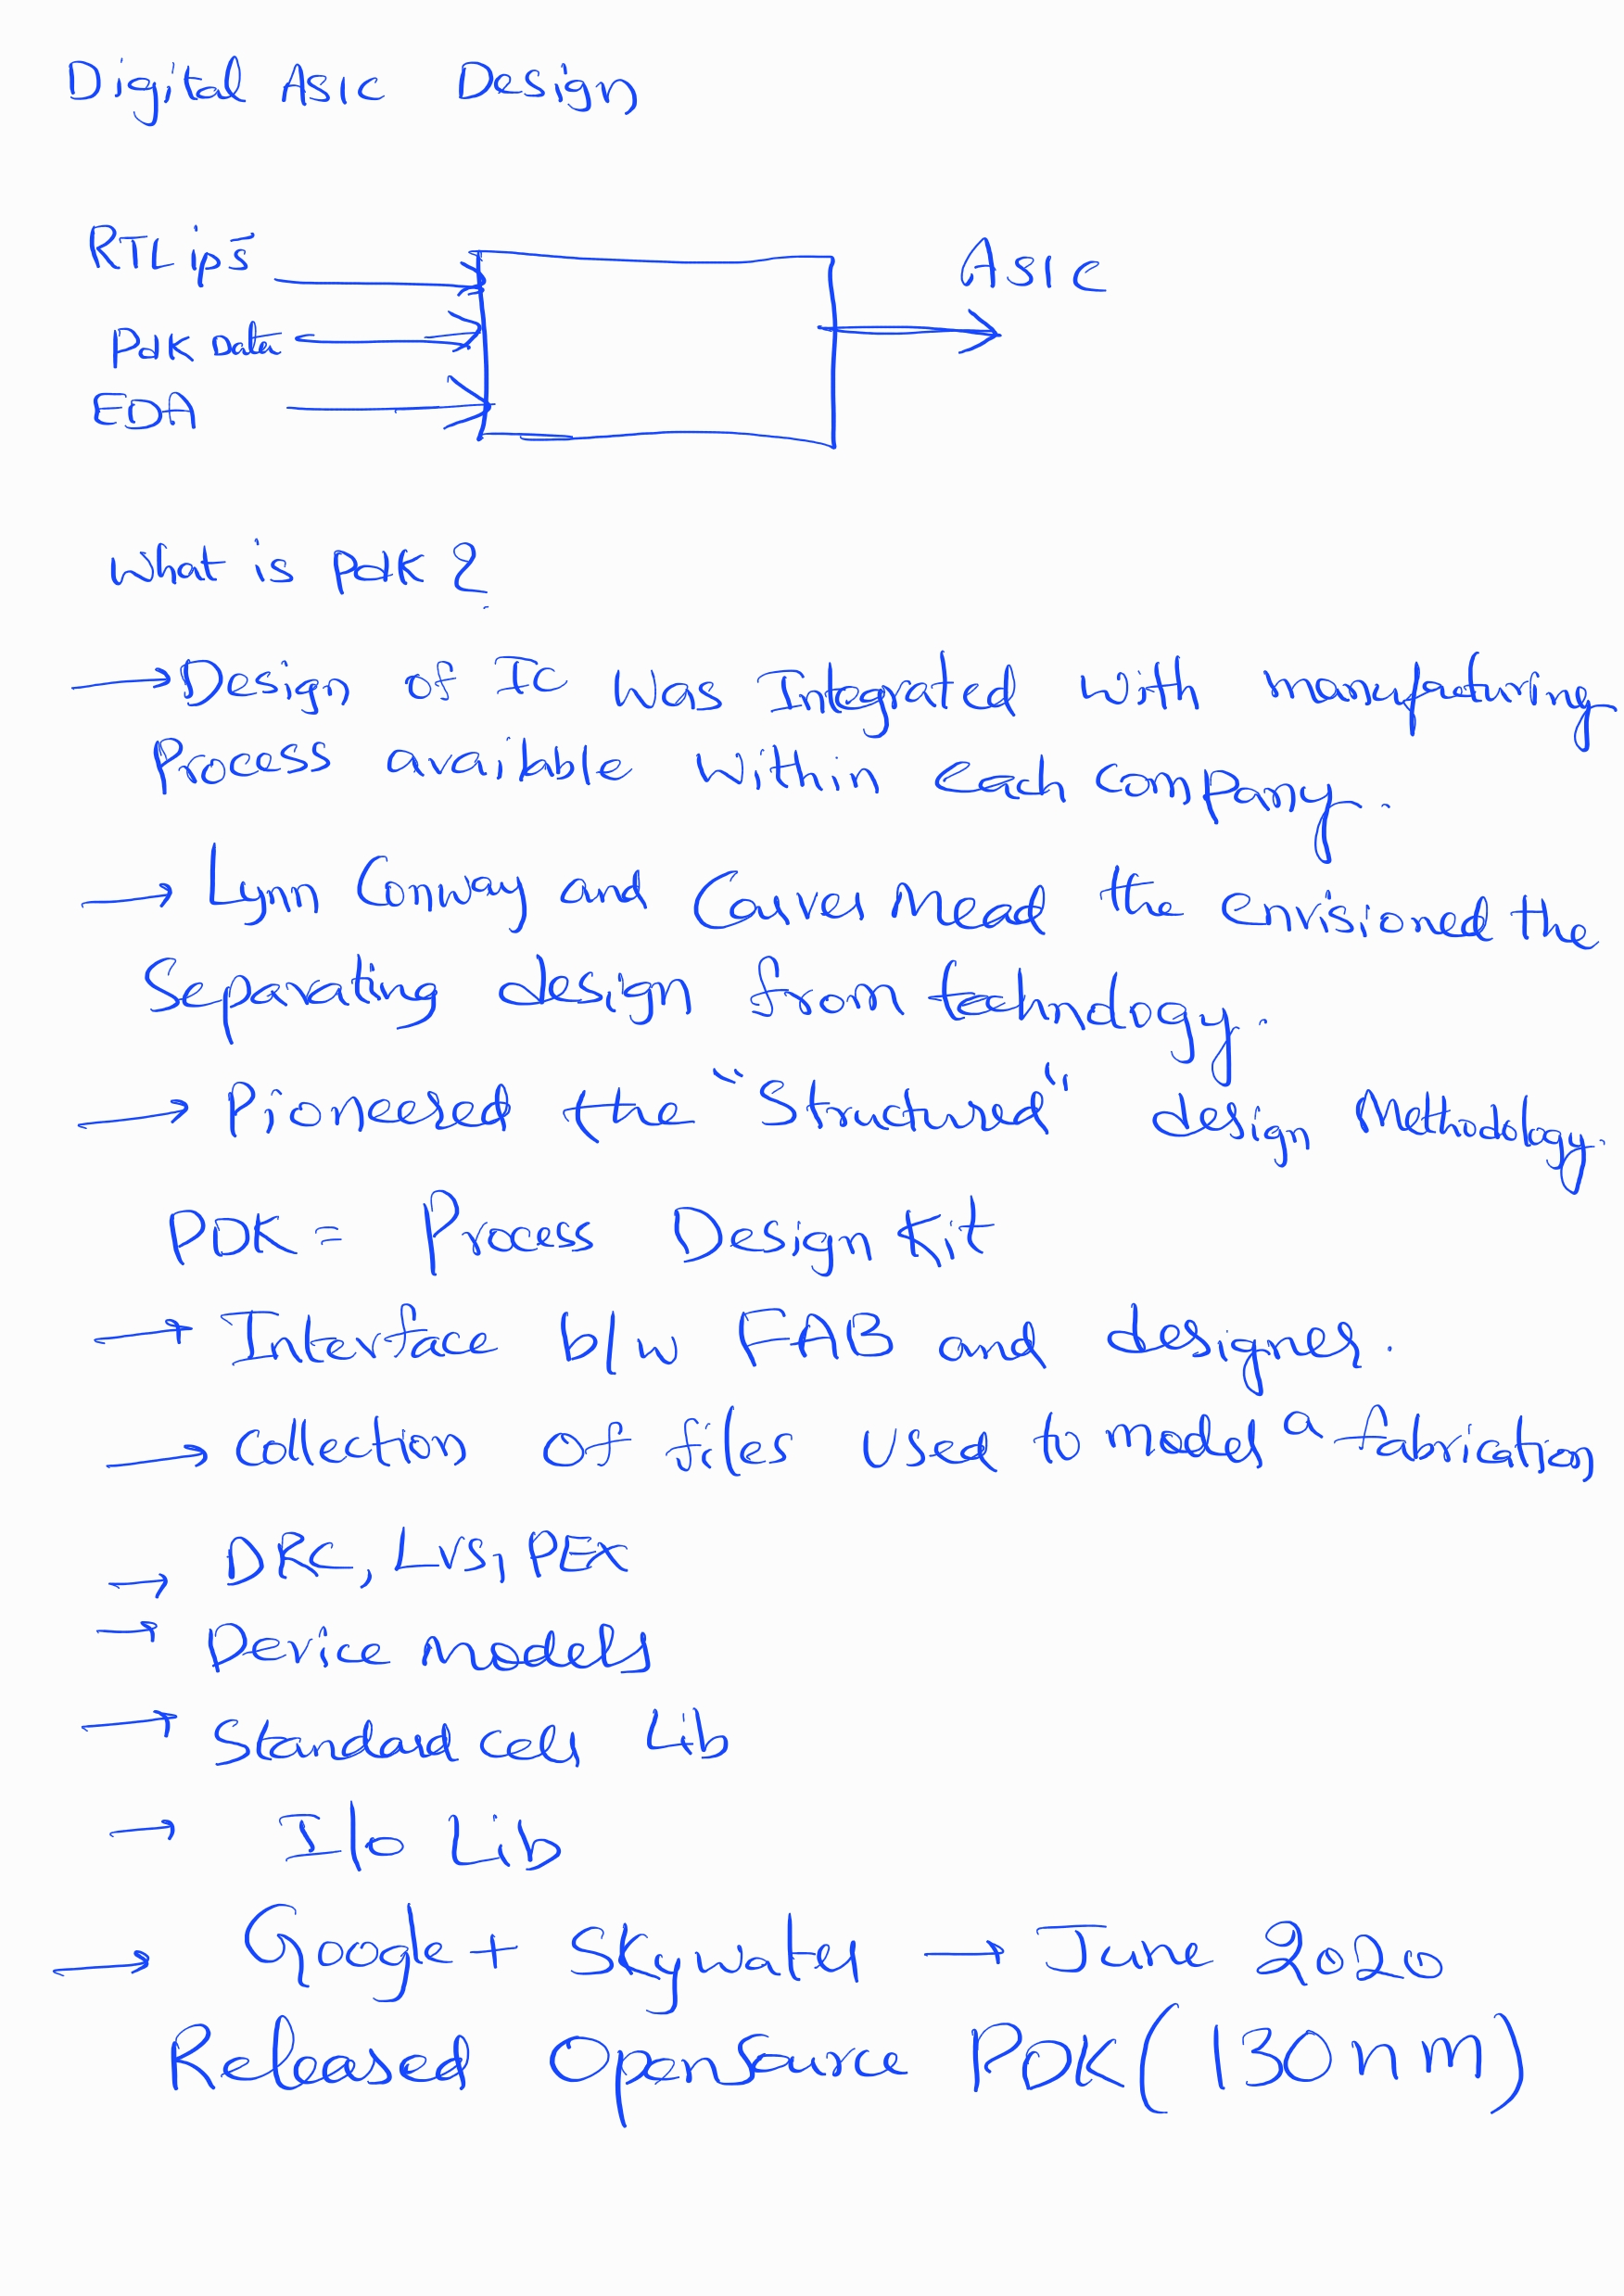 Digital Asic Design
RTL ip's
Asic
Pdk Data
EDA
What is pdk ?
→ Design of IC was Integrated with manufacturing
Process available within each company.
→ Lynn Conway and Carver Mead the envisioned the
Separating design from technology.
→ Pioneered the "Structured" design Methodology.
PDK = Process Design Kit
→ Interface b/w FAB and designer.
→ Collection of files used to model a fabrication
→ DRC, LVS, PEX
→ Device models
→ Standard cell Lib
→ I/o Lib
→ Google + Skywater → June 2020
Released Opensource PDK (130nm)